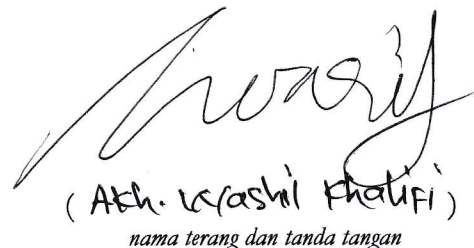 (Akh. Washil Khalifi)
nama terang dan tanda tangan